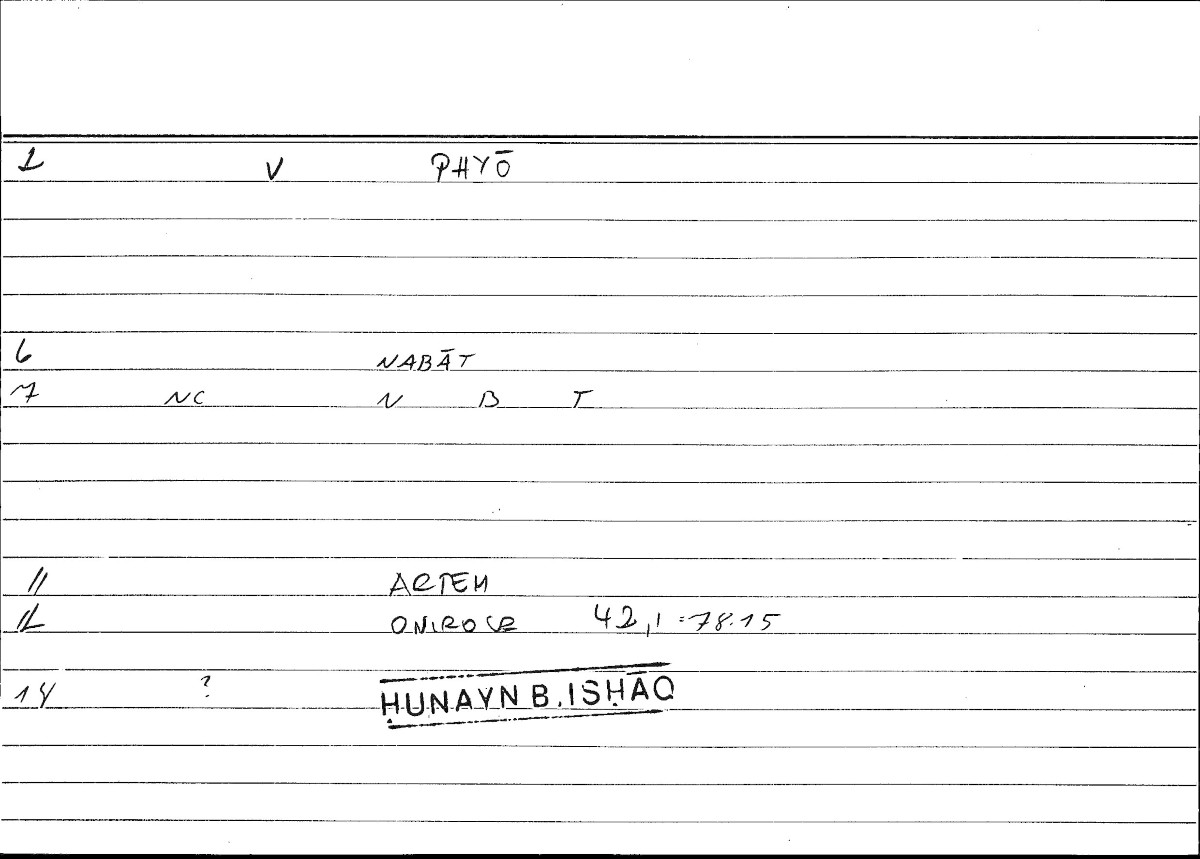 1 V PHYŌ
6 NABĀT
7 NC N B T
11 ARTEM
12 ONIROCR 42,1 = 78.15
14 ? ḤUNAYN B. ISḤĀQ